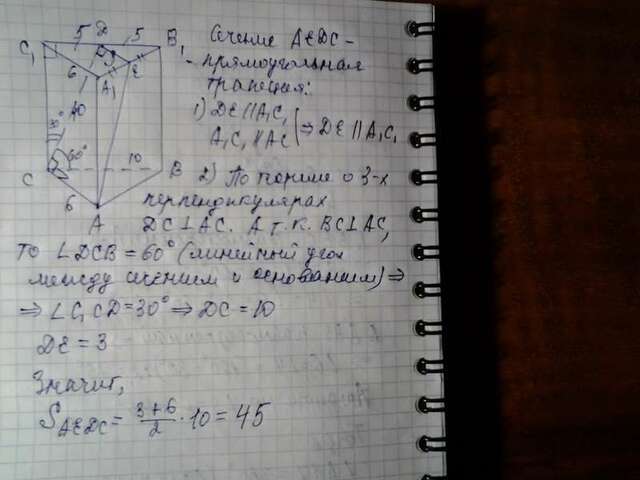 5 D 5
C₁ B₁
6 A₁ E
30°
60° 10
C B
6
A
Сечение AEDC –
– прямоугольная
трапеция:
1) DE∥A₁C₁
A₁C₁∥AC ⇒ DE∥A₁C₁
2) По теореме о 3-х
перпендикулярах
DC⊥AC. А т.к. BC⊥AC,
то ∠DCB = 60° (линейный угол
между сечением и основанием) ⇒
⇒ ∠C₁CD = 30° ⇒ DC = 10
DE = 3
Значит,
S_AEDC = (3+6)/2 · 10 = 45